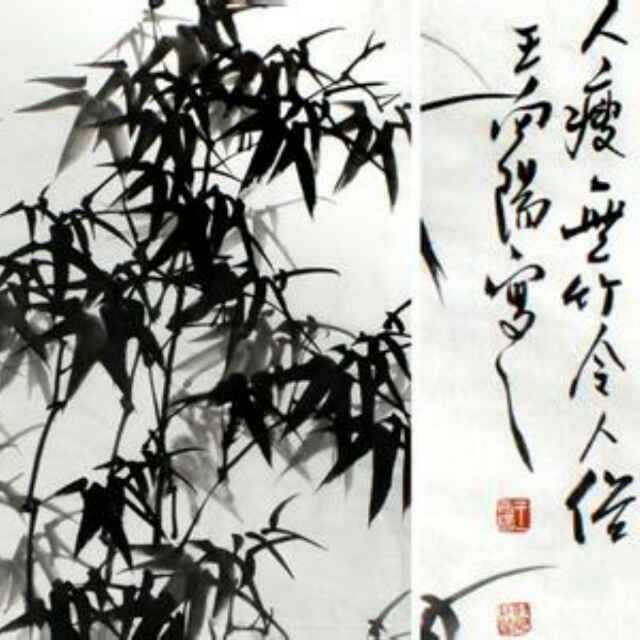 人瘦無竹令人俗
王向陽寫